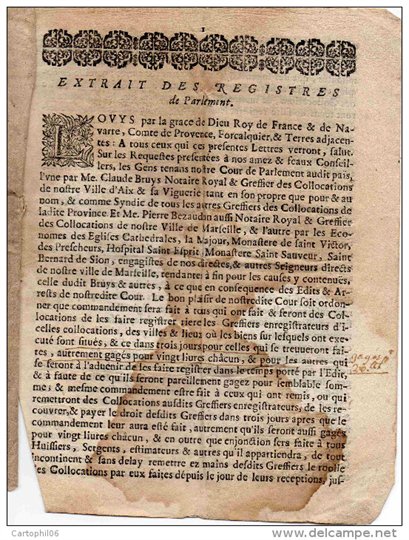 1
EXTRAIT DES REGISTRES
de Parlement.
LOVYS par la grace de Dieu Roy de France & de Na-
varre, Comte de Provence, Forcalquier, & Terres adjacen-
tes: A tous ceux qui ces presentes Lettres verront, salut.
Sur les Requestes presentées à nos amez & feaux Conseil-
lers, les Gens tenans nostre Cour de Parlement audit païs,
l'vne par Me. Claude Bruys Notaire Royal & Greffier des Collocations
de nostre Ville d'Aix & sa Viguerie tant en son propre que pour & au
nom, & comme Syndic de tous les autres Greffiers des Collocations de
ladite Province Et Me. Pierre Bezaudin aussi Notaire Royal & Greffier
des Collocations de nostre Ville de Marseille, & l'autre par les Econo-
mes des Eglises Cathedrales, la Majour, Monastere de saint Victor,
des Prescheurs, Hospital Saint Esprit, Monastere Saint Sauveur, Saint
Bernard de Sion, engagistes de nos directes, & autres Seigneurs directs
de nostre ville de Marseille, rendante: à fin pour les causes y contenuës,
celle dudit Bruys & autres, à ce que en consequence des Edits & Ar-
rests de nostredite Cour. Le bon plaisir de nostredite Cour soit ordon-
ner que commandement sera fait à tous qui ont fait & feront des Col-
locations de les faire registrer riere les Greffiers enregistrateurs d'i-
celles collocations, des villes & lieux où les biens sur lesquels ont exe-
cuté sont situés, & ce dans trois jours pour celles qui se treuveront fai-
tes, autrement gagés pour vingt livres châcun, & pour les autres qui
se feront à l'aduenir de les faire registrer dans le temps porté par l'Edit,
& à faute de ce qu'ils seront pareillement gagez pour semblable som-
me; & mesme commandement estre fait à ceux qui ont remis, ou qui
remettront des Collocations ausdits Greffiers enregistrateurs, de les re-
couvrer, & payer le droit desdits Greffiers dans trois jours apres que le
commandement leur aura esté fait, autrement qu'ils seront aussi gagés
pour vingt livres châcun, & en outre que enjonction sera faite à tous
Huissiers, Sergents, estimateurs & autres qu'il appartiendra, de tout
incontinent & sans delay remettre ez mains desdits Greffiers le roolle
des Collocations par eux faites depuis le jour de leurs receptions, jus-
Cartophil06
www.delcampe.net